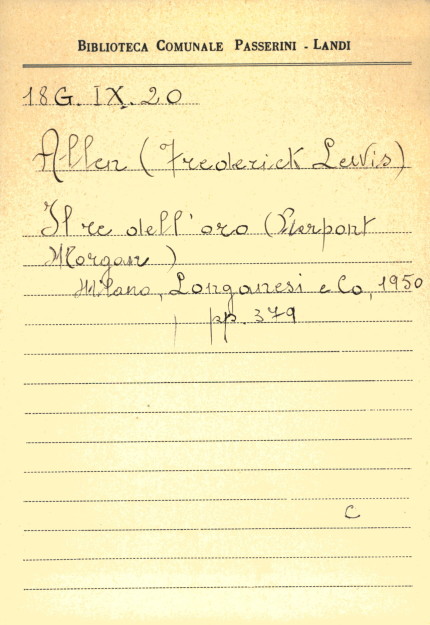 BIBLIOTECA COMUNALE PASSERINI - LANDI
18G. IX. 20
Allen (Frederick Lewis)
Il re dell'oro (Pierpont
Morgan)
Milano, Longanesi e Co, 1950
pp. 379
C